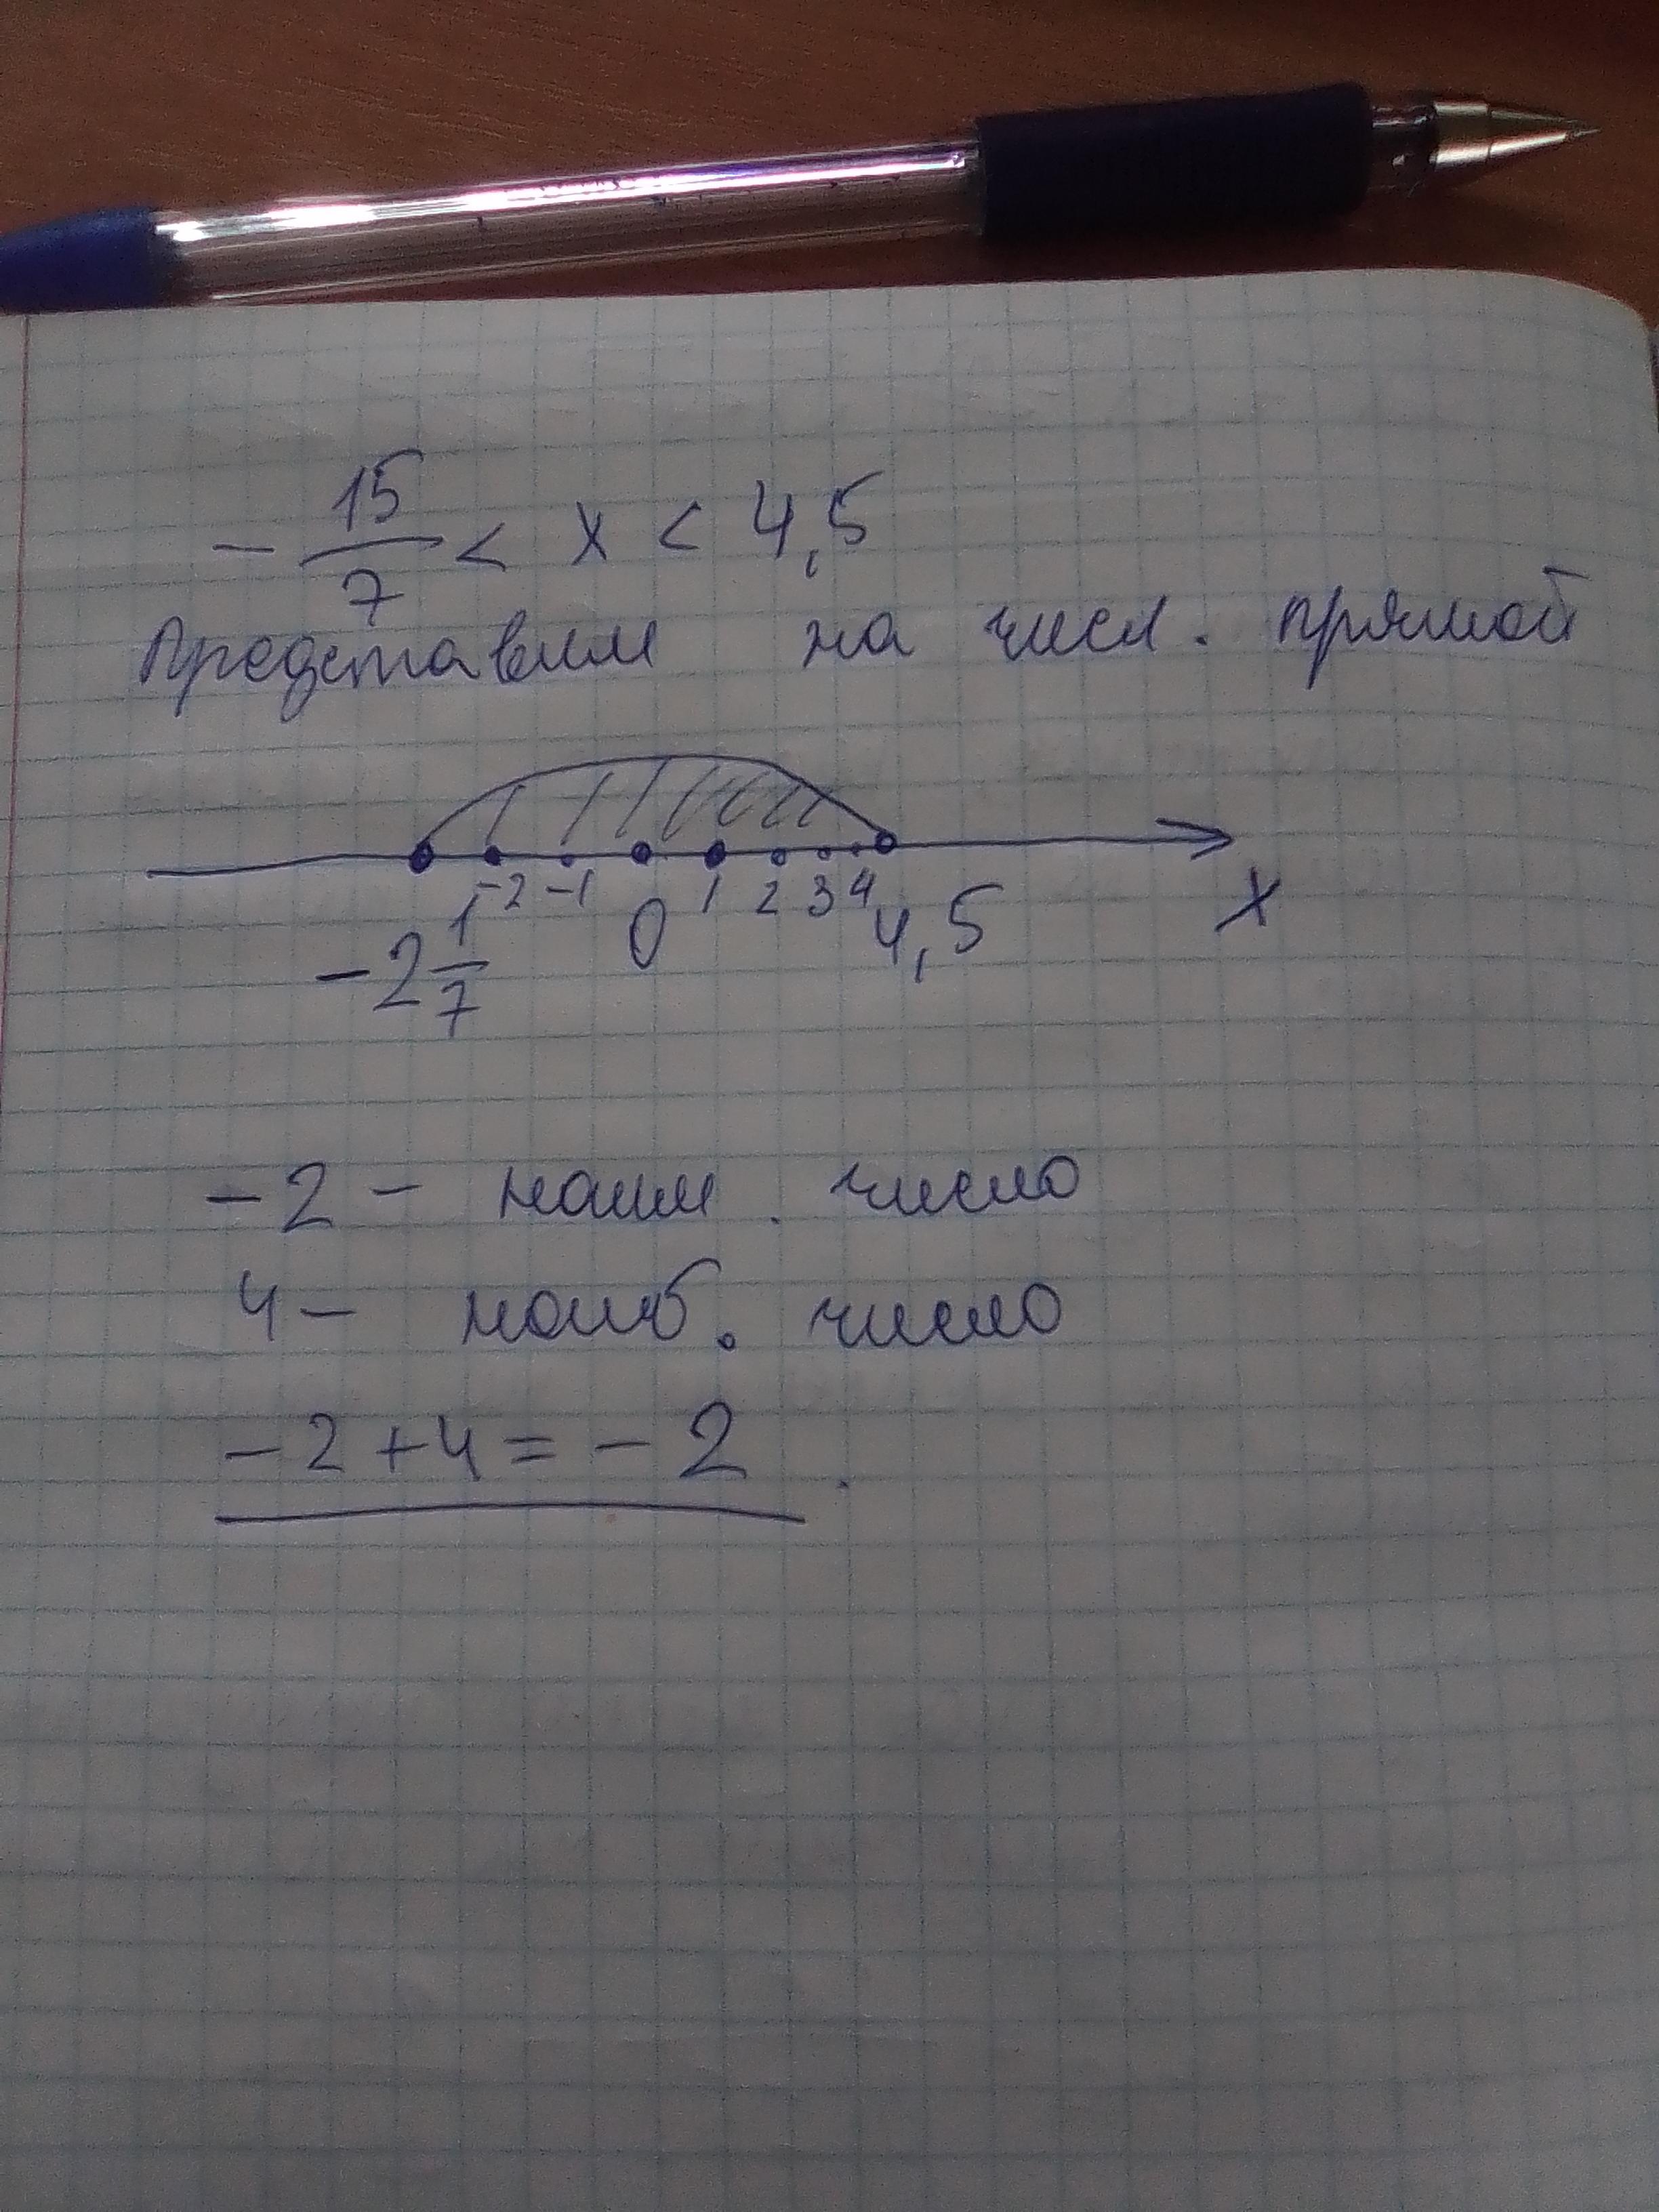 - 15/7 < x < 4,5
Представим на числ. прямой
-2 -1 0 1 2 3 4 4,5 x
-2 1/7
-2 - наим. число
4 - наиб. число
-2+4=-2.